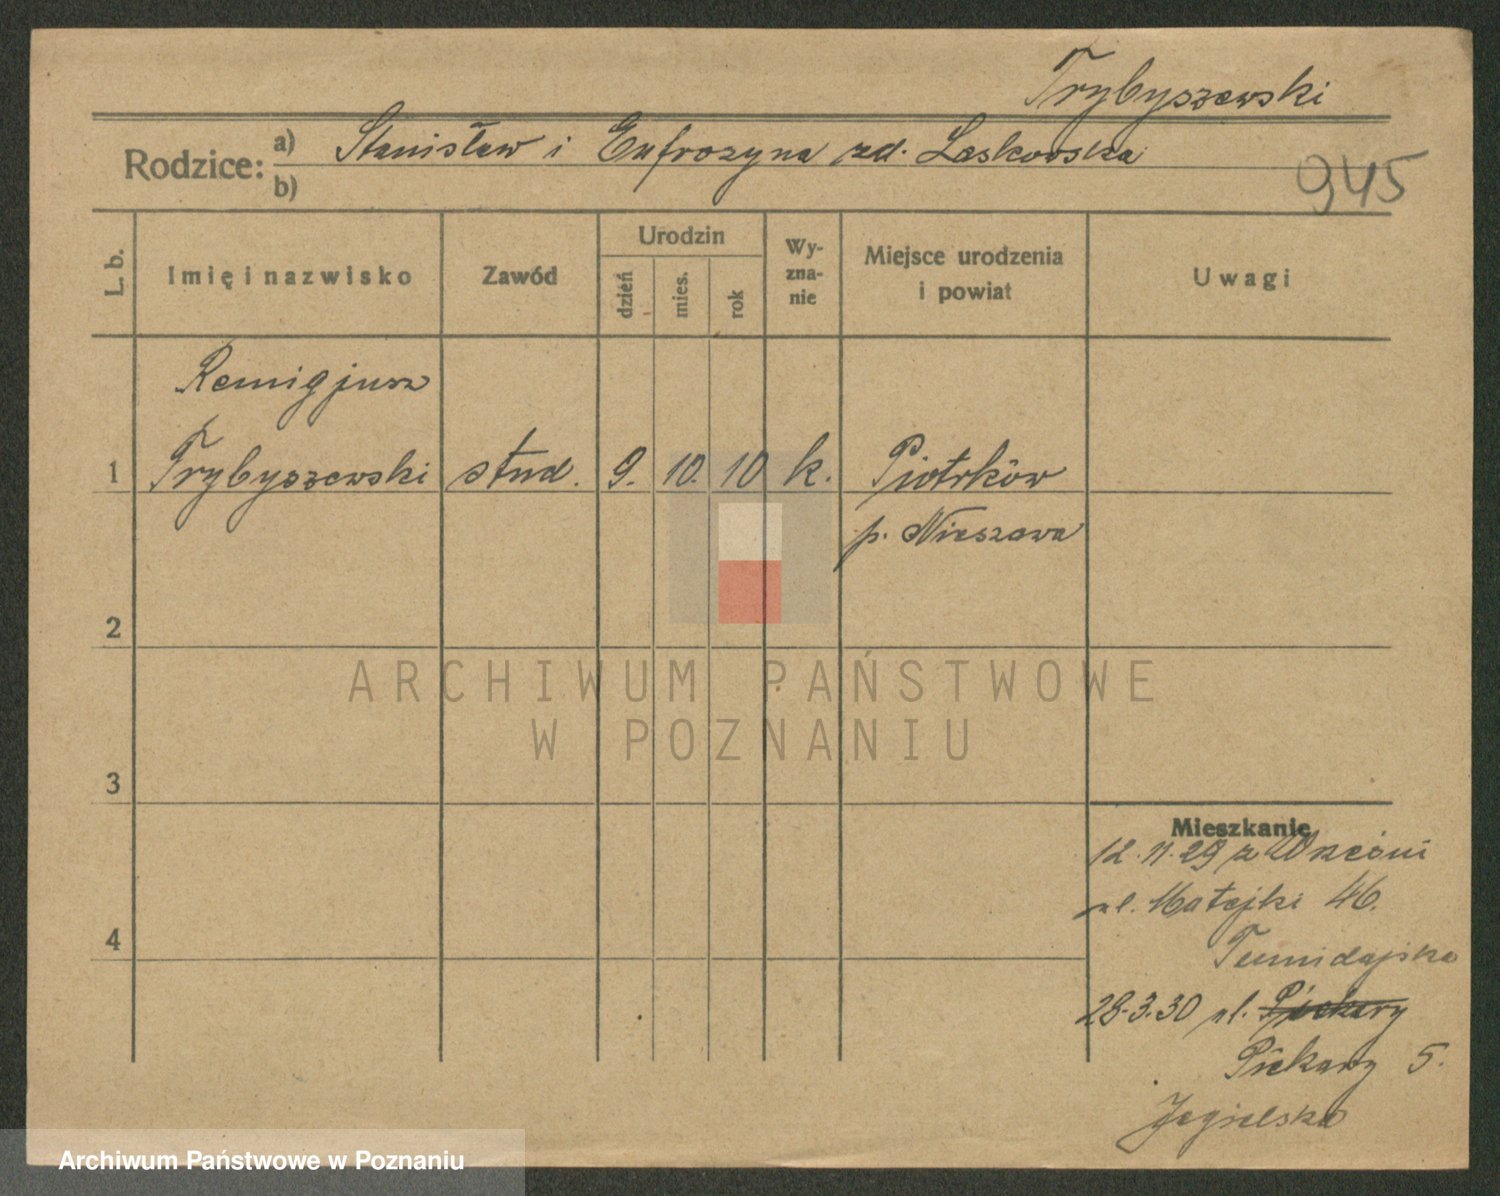 Trybyszewski
Rodzice: a) Stanisław i Eufrozyna zd. Laskowska
b)
945
L. b.
Imię i nazwisko
Zawód
Urodzin
dzień
mies.
rok
Wy-
zna-
nie
Miejsce urodzenia
i powiat
Uwagi
Remigjusz
1 Trybyszewski stud. 9. 10. 10 k. Piotrków
p. Nieszawa
2
3
4
ARCHIWUM PAŃSTWOWE
W POZNANIU
Mieszkanie
12.11.29 z
ul. Matejki 46.
28.3.30 ul. Piekary
Piekary 5.
Jagielska
Archiwum Państwowe w Poznaniu